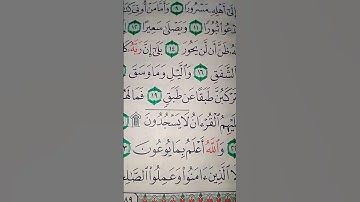 إِلَىٰٓ أَهۡلِهِۦ مَسۡرُورٗا ٩ وَأَمَّا مَنۡ أُوتِيَ
ثُبُورٗا ١١ وَيَصۡلَىٰ سَعِيرًا ١٢
ظَنَّ أَن لَّن يَحُورَ ١٤ بَلَىٰٓۚ إِنَّ رَبَّهُۥ
ٱلشَّفَقِ ١٦ وَٱلَّيۡلِ وَمَا وَسَقَ
طَبَقًا عَن طَبَقٖ ١٩ فَمَا
ٱلۡقُرۡءَانُ لَا يَسۡجُدُونَۤ۩
وَٱللَّهُ أَعۡلَمُ بِمَا يُوعُونَ
ٱلَّذِينَ ءَامَنُواْ وَعَمِلُواْ